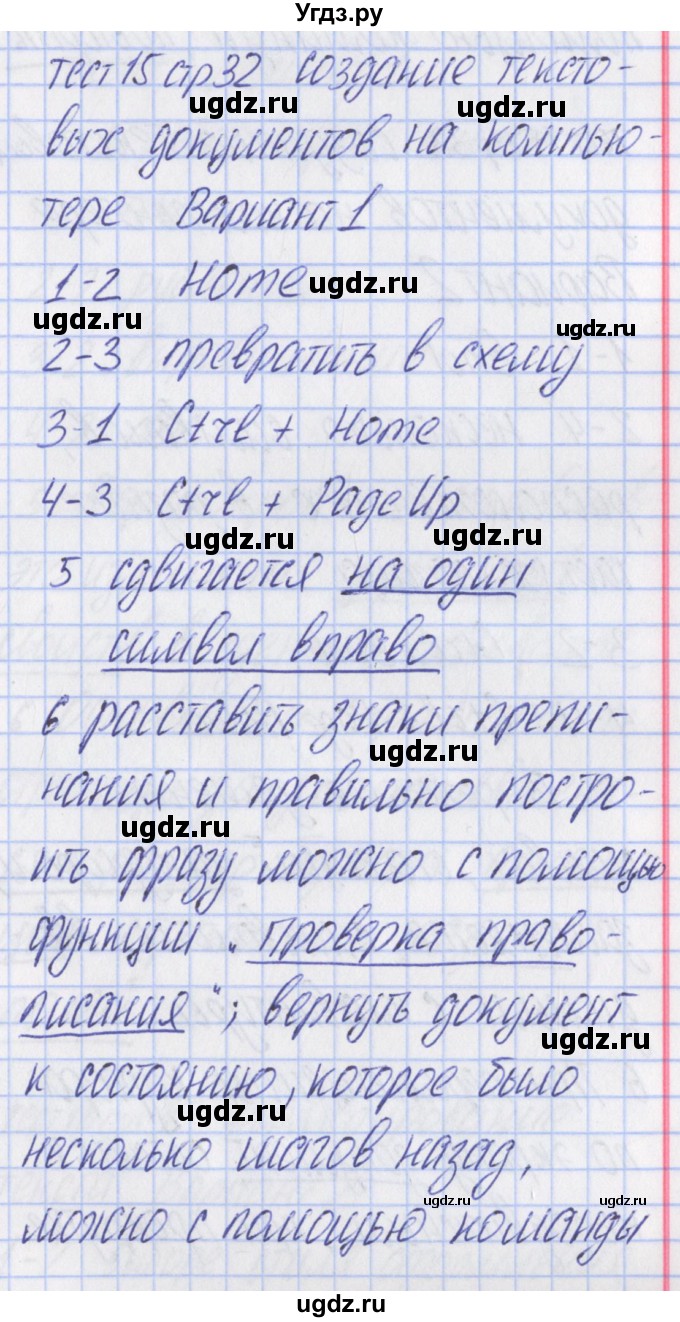 Угдз.ру
тест 15 стр 32 создание тексто-
ugdz.ru ugdz.ru
вых документов на компью-
тере Вариант 1
1-2 Home ugdz.ru
ugdz.ru ugdz.ru
2-3 превратить в схему
3-1 Ctrl + Home
4-3 Ctrl + Page Up
ugdz.ru ugdz.ru
5 сдвигается на один
символ вправо
6 расставить знаки препи-
ugdz.ru
нания и правильно постро-
ugdz.ru
ить фразу можно с помощью
функции „проверка право-
писания"; вернуть документ
ugdz.ru
к состоянию, которое было
ugdz.ru
несколько шагов назад,
ugdz.ru ugdz.ru
можно с помощью команды
ugdz.ru